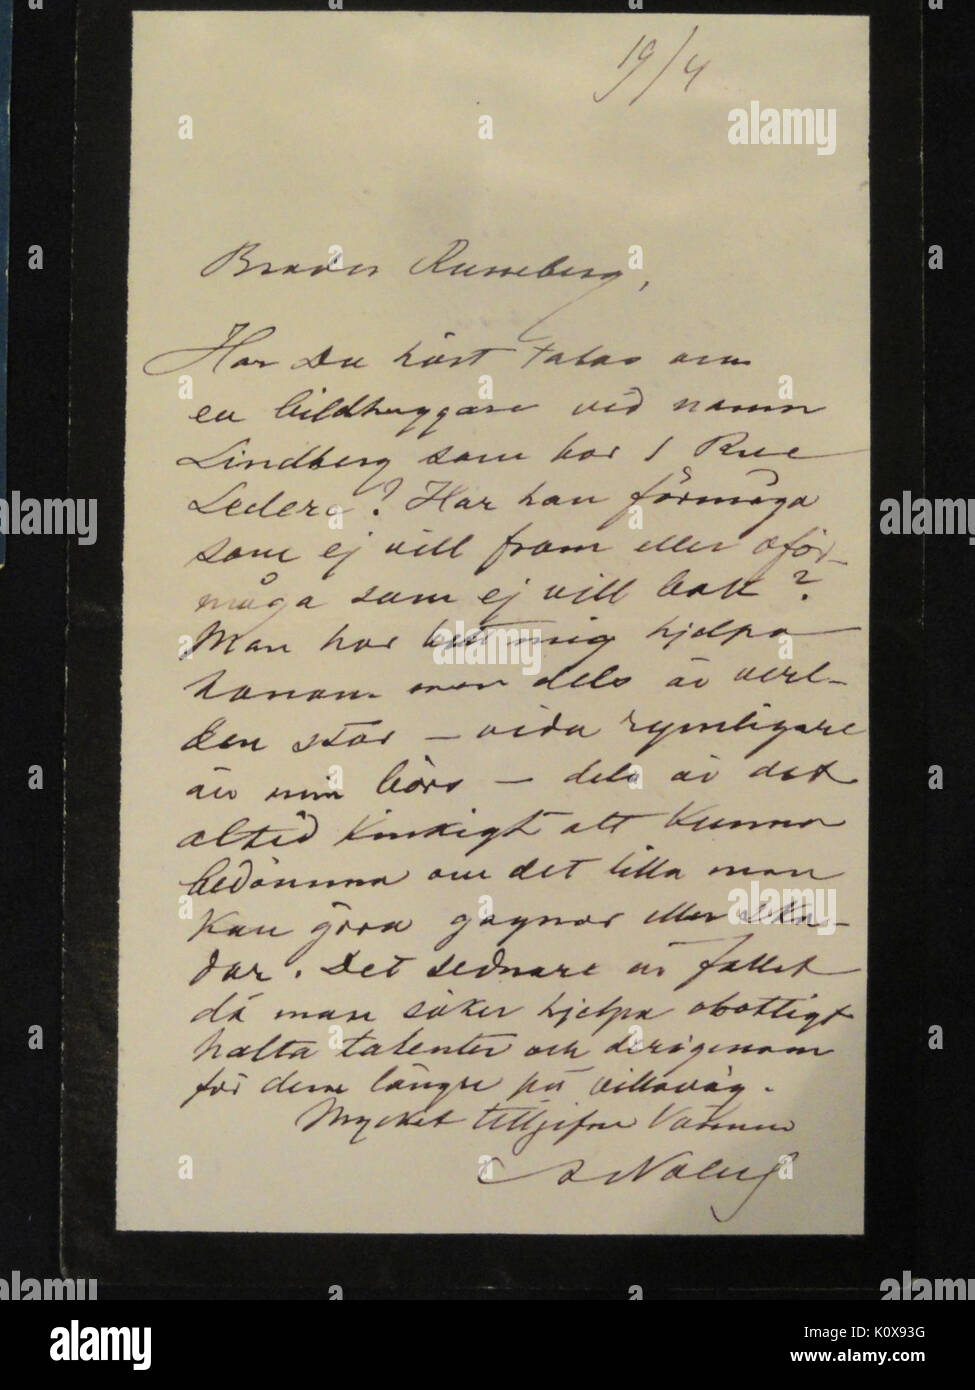 19/4
Broder Runeberg,
Har Du hört talas om
en bildhuggare vid namn
Lindberg som bor 1 Rue
Leclerc? Har han förmåga
som ej vill fram eller oför-
måga som ej vill bak?
Man har bett mig hjelpa
honom men dels är verl-
den stor – vida rymligare
än min börs – dels är det
altid kinkigt att kunna
bedömma om det lilla man
kan göra gagnar eller ska-
dar. Det sednare är fallet
då man söker hjelpa obotligt
halta talenter och derigenom
för dem längre på villoväg.
Mycket tillgifne Vännen
A Nobel
alamy stock photo
K0X93G
www.alamy.com